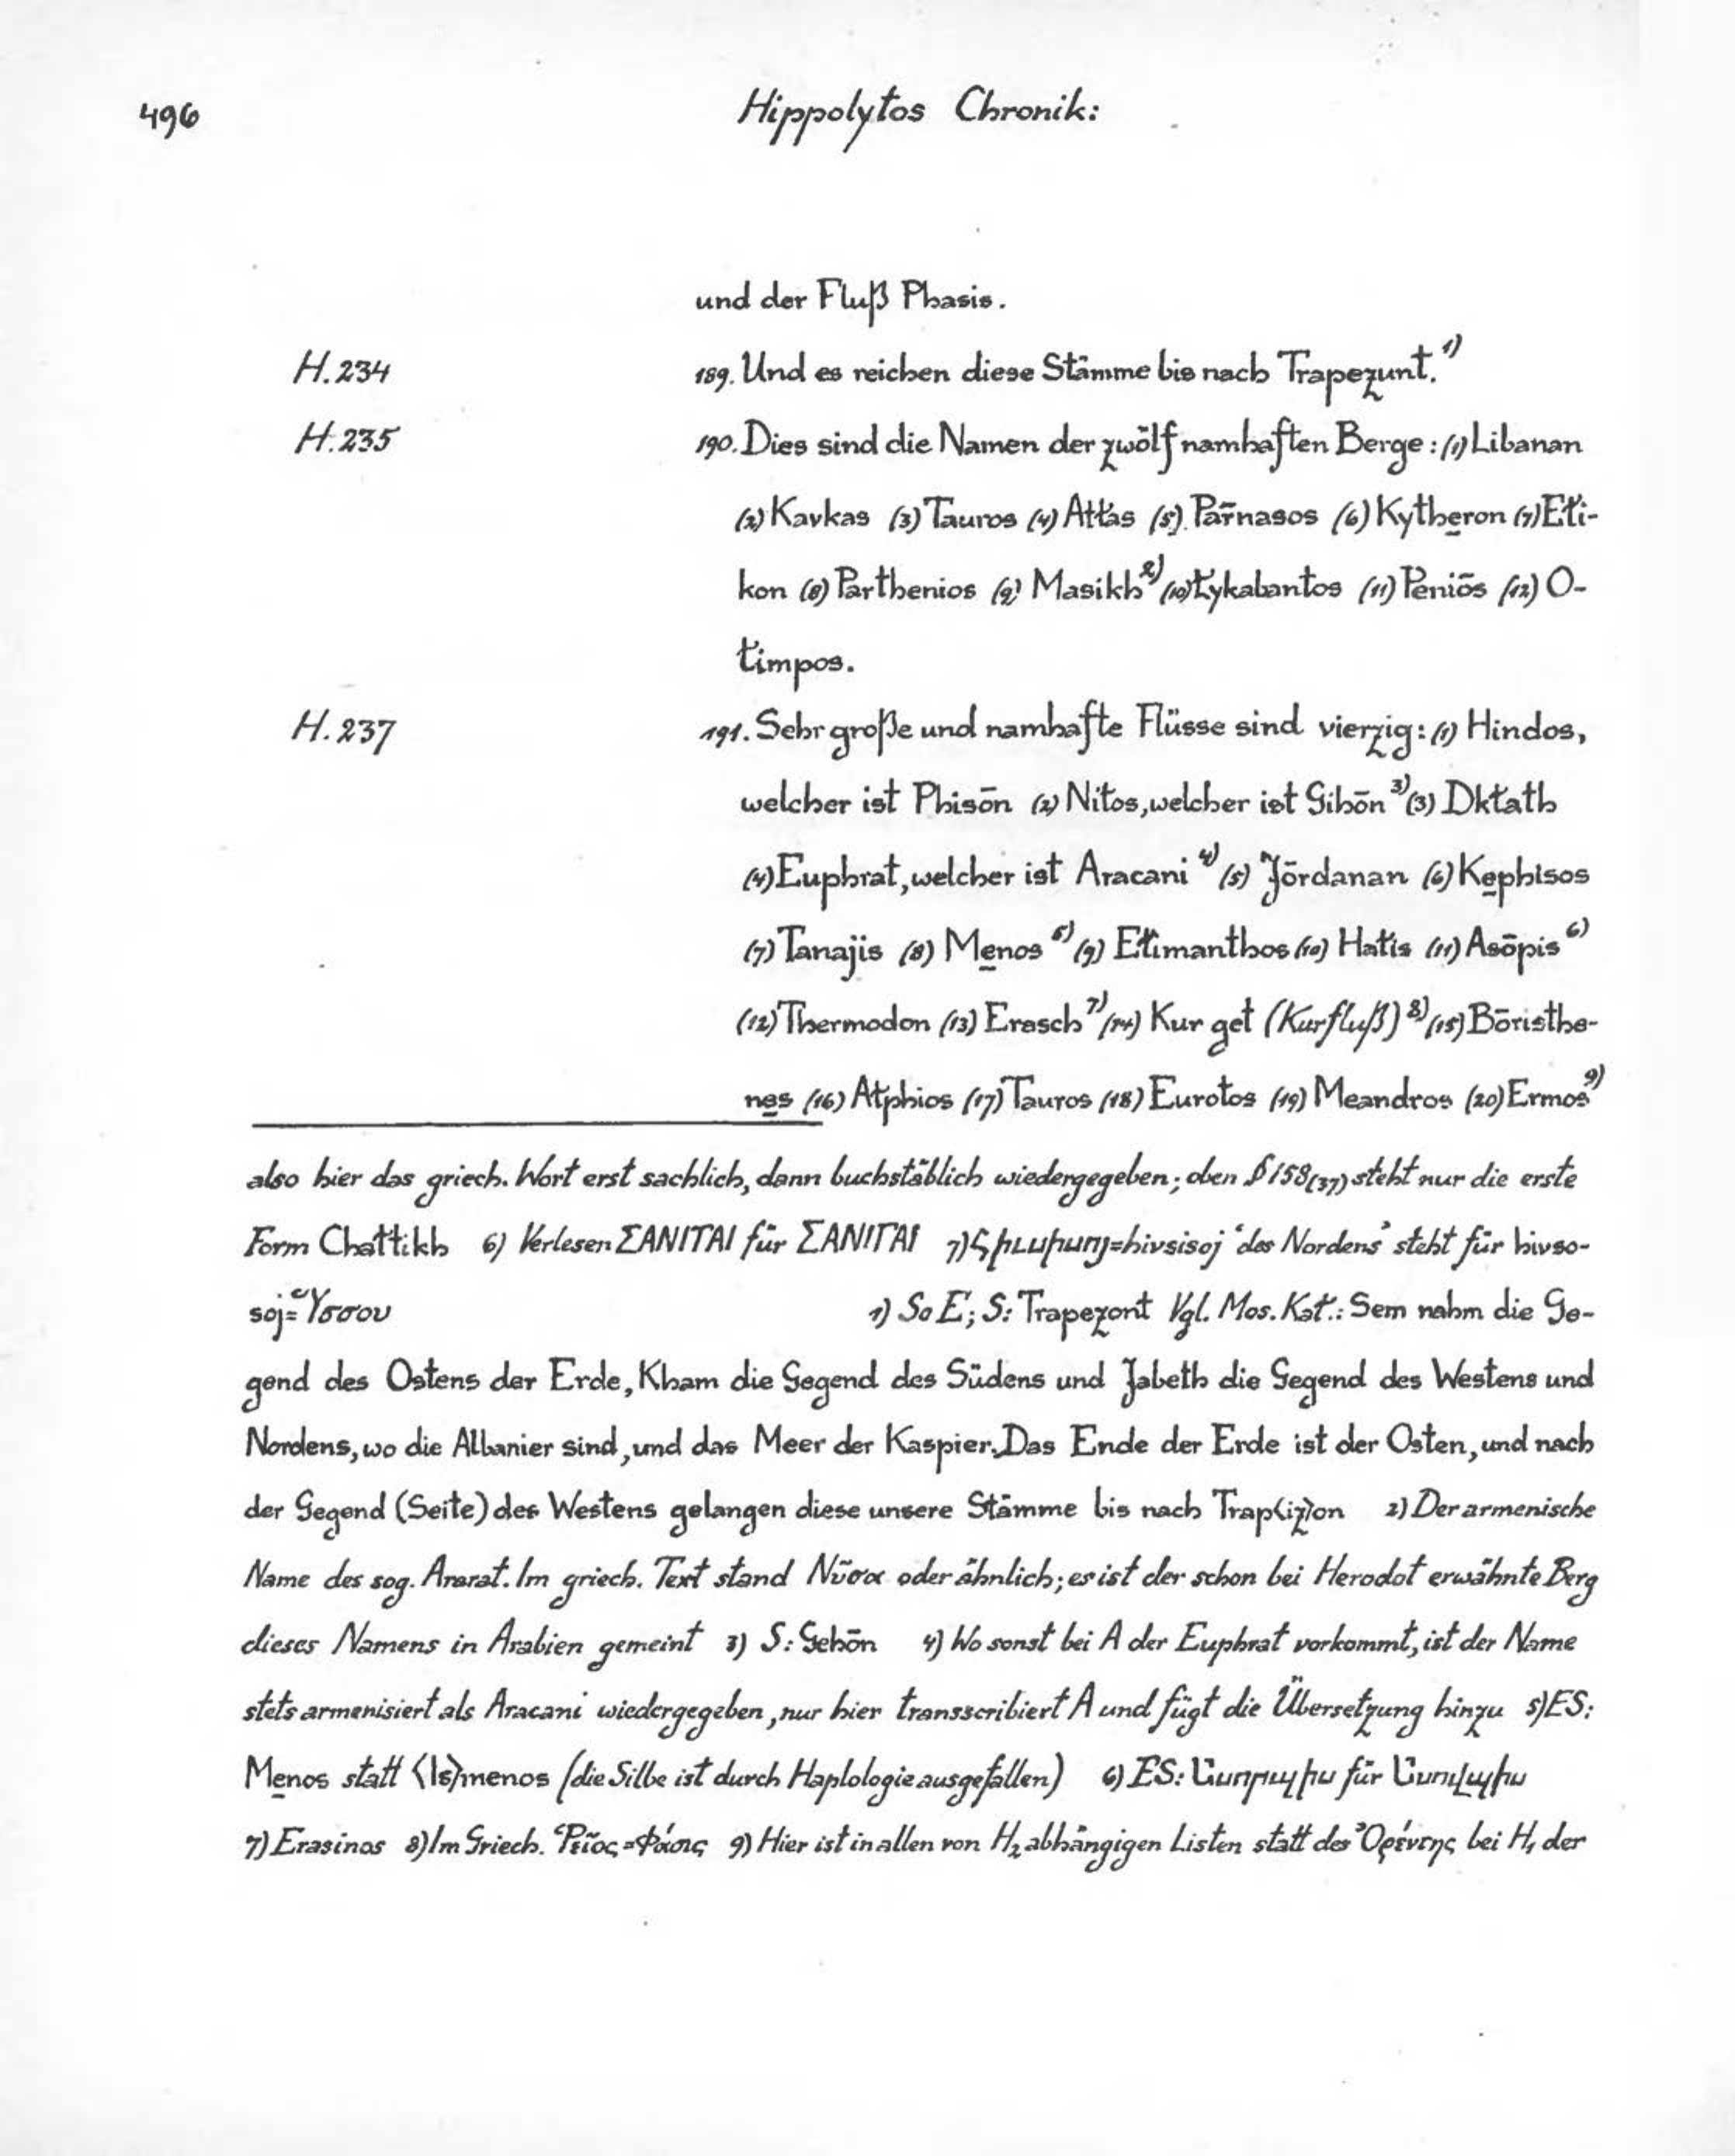 496
Hippolytos Chronik:
und der Fluß Phasis.
H.234 189. Und es reichen diese Stämme bis nach Trapezunt.¹⁾
H.235 190. Dies sind die Namen der zwölf namhaften Berge: (1) Libanan
(2) Kavkas (3) Tauros (4) Atłas (5) Par̄nasos (6) Kytḥe̱ron (7) Ełi-
kon (8) Parthenios (9) Masikh²⁾ (10) Łykabantos (11) Peniōs (12) O-
łimpos.
H.237 191. Sehr große und namhafte Flüsse sind vierzig: (1) Hindos,
welcher ist Phisōn (2) Niłos, welcher ist Gihōn³⁾ (3) Dkłath
(4) Euphrat, welcher ist Aracani⁴⁾ (5) Jōrdanan (6) Ke̱phisos
(7) Tanajis (8) Me̱nos⁵⁾ (9) Ełimanthos (10) Hałis (11) Asōpis⁶⁾
(12) Thermodon (13) Erasch⁷⁾ (14) Kur get (Kurfluß)⁸⁾ (15) Bōristhe-
ne̱s (16) Ałphios (17) Tauros (18) Eurotos (19) Meandros (20) Ermos⁹⁾
also hier das griech. Wort erst sachlich, dann buchstäblich wiedergegeben; oben § 158(37) steht nur die erste
Form Chattikh 6) Verlesen ΣΑΝΙΤΑΙ für ΣΑΝΙΓΑΙ 7) Հիւսիսոյ=hivsisoj ‘des Nordens’ steht für hivso-
soj=Ὕσσου 1) So E; S: Trapezont Vgl. Mos. Kał.: Sem nahm die Ge-
gend des Ostens der Erde, Kham die Gegend des Südens und Jabeth die Gegend des Westens und
Nordens, wo die Albanier sind, und das Meer der Kaspier. Das Ende der Erde ist der Osten, und nach
der Gegend (Seite) des Westens gelangen diese unsere Stämme bis nach Trap⟨iz⟩on 2) Der armenische
Name des sog. Ararat. Im griech. Text stand Νῦσα oder ähnlich; es ist der schon bei Herodot erwähnte Berg
dieses Namens in Arabien gemeint 3) S: Gehōn 4) Wo sonst bei A der Euphrat vorkommt, ist der Name
stets armenisiert als Aracani wiedergegeben, nur hier transscribiert A und fügt die Übersetzung hinzu 5) ES:
Me̱nos statt ⟨Is⟩menos (die Silbe ist durch Haplologie ausgefallen) 6) ES: für
7) Erasinos 8) Im Griech. Ῥεῖος=Φάσις 9) Hier ist in allen von H₂ abhängigen Listen statt des Ὀρέντης bei H₁ der